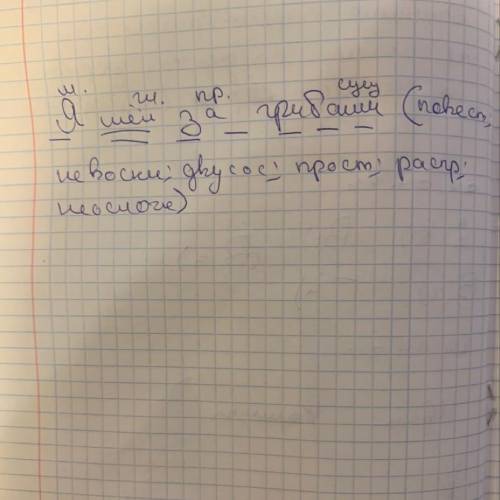 м. гл. пр. сущ
Я шёл за грибами (повест,
невоскл; двусос; прост; распр;
неослож)